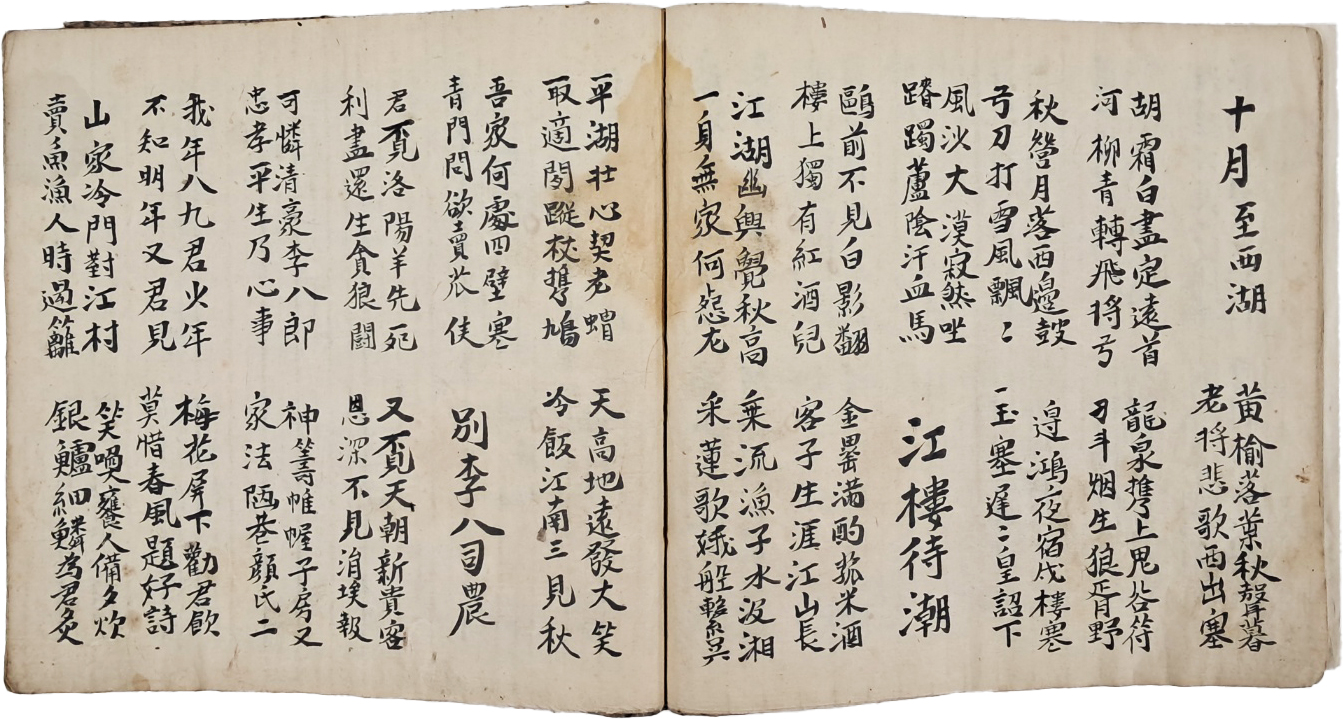 十月至西湖
黃榆落葉秋聲暮
老將悲歌西出塞
胡霜白盡定遠首
河柳青轉飛將弓
龍泉携上鬼谷符
刁斗烟生狼胥野
秋營月落西邊鼓
弓刀打雪風飄〻
遑鴻夜宿戍樓寒
一玉塞遲〻皇詔下
風沙大漠寂然坐
躇躅蘆陰汗血馬
江樓待潮
鷗前不見白影翻
樓上獨有紅酒兒
金罍滿酌菰米酒
客子生涯江山長
江湖幽興覺秋高
一身無家何怨尤
乘流漁子水汲湘
采蓮歌娥船繫吳
平湖壯心契老蝟
取適閔蹤杖携鳩
天高地遠發大笑
冷飯江南三見秋
吾家何處四壁寒
青門問欲賣苽侯
別李八司農
君不見洛陽羊先死
利盡還生貪狼闘
又不見天朝新貴客
恩深不見涓埃報
可憐清豪李八郎
忠孝平生乃心事
神籌帷幄子房又
家法陋巷顔氏二
我年八九君少年
不知明年又君見
梅花屛下勸君飮
莫惜春風題好詩
山家冷門對江村
賣魚漁人時過籬
笑喚饔人備夕炊
銀鱸細鱗爲君炙